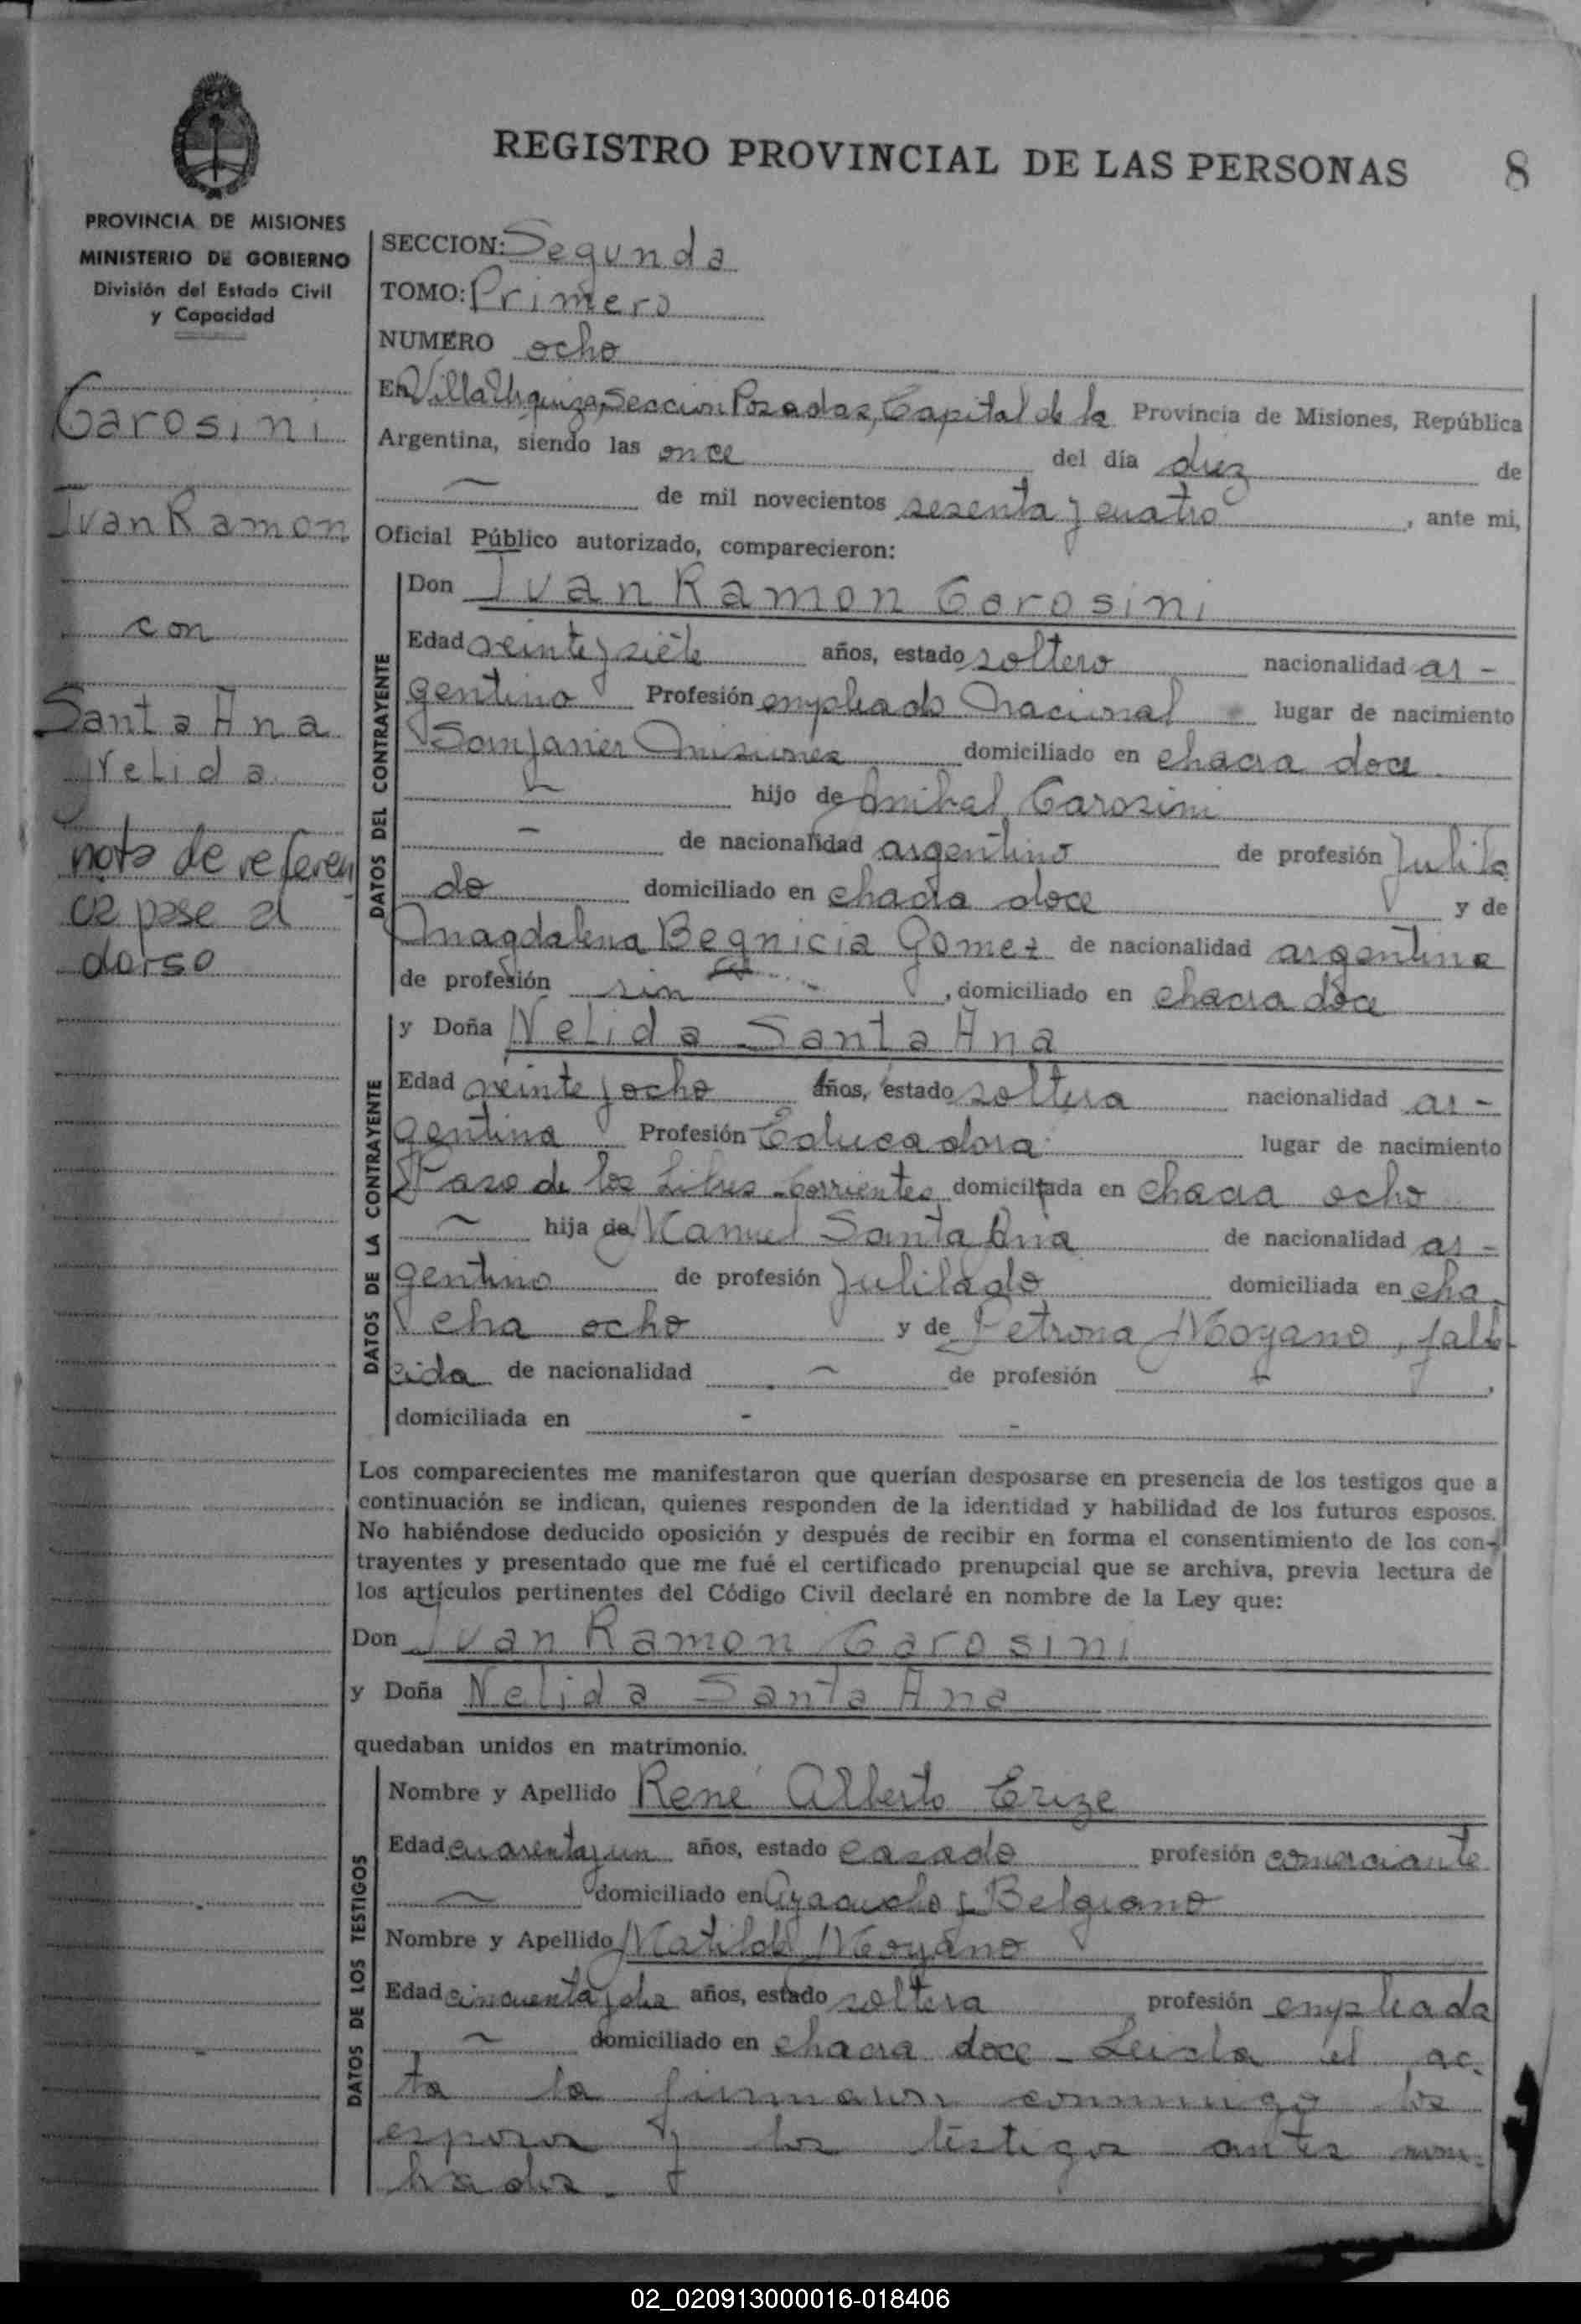 REGISTRO PROVINCIAL DE LAS PERSONAS 8
PROVINCIA DE MISIONES
MINISTERIO DE GOBIERNO
División del Estado Civil
y Capacidad
Carosini
Ivan Ramon
con
Santa Ana
Nelida
nota de referen
cia pase al
dorso
SECCION: Segunda
TOMO: Primero
NUMERO ocho
En Villa Urquiza, Seccion Posadas, Capital de la Provincia de Misiones, República
Argentina, siendo las once del día diez de
de mil novecientos sesenta y cuatro, ante mi,
Oficial Público autorizado, comparecieron:
DATOS DEL CONTRAYENTE
Don Ivan Ramon Carosini
Edad veinte y siete años, estado soltero nacionalidad ar-
gentino Profesión empleado Nacional lugar de nacimiento
San Javier Misiones domiciliado en chacra doce
hijo de Anibal Carosini
de nacionalidad argentino de profesión Jubila
do domiciliado en chacra doce y de
Magdalena Begnicia Gomez de nacionalidad argentina
de profesión sin, domiciliado en chacra doce
DATOS DE LA CONTRAYENTE
y Doña Nelida Santa Ana
Edad veinte y ocho años, estado soltera nacionalidad ar-
gentina Profesión Educadora lugar de nacimiento
Paso de los Libres - Corrientes domiciliada en chacra ocho
hija de Manuel Santa Ana de nacionalidad ar-
gentino de profesión Jubilado domiciliada en cha
cha ocho y de Petrona Moyano, falle
cida de nacionalidad de profesión ,
domiciliada en
Los comparecientes me manifestaron que querían desposarse en presencia de los testigos que a
continuación se indican, quienes responden de la identidad y habilidad de los futuros esposos.
No habiéndose deducido oposición y después de recibir en forma el consentimiento de los con-
trayentes y presentado que me fué el certificado prenupcial que se archiva, previa lectura de
los artículos pertinentes del Código Civil declaré en nombre de la Ley que:
Don Ivan Ramon Carosini
y Doña Nelida Santa Ana
quedaban unidos en matrimonio.
DATOS DE LOS TESTIGOS
Nombre y Apellido René Alberto Erize
Edad cuarenta y un años, estado casado profesión comerciante
domiciliado en Ayacucho y Belgrano
Nombre y Apellido Matilde Moyano
Edad cincuenta y dos años, estado soltera profesión empleada
domiciliado en chacra doce - Leida el ac-
ta la firmaron conmigo los
esposos y los testigos antes nom-
brados.
02_020913000016-018406